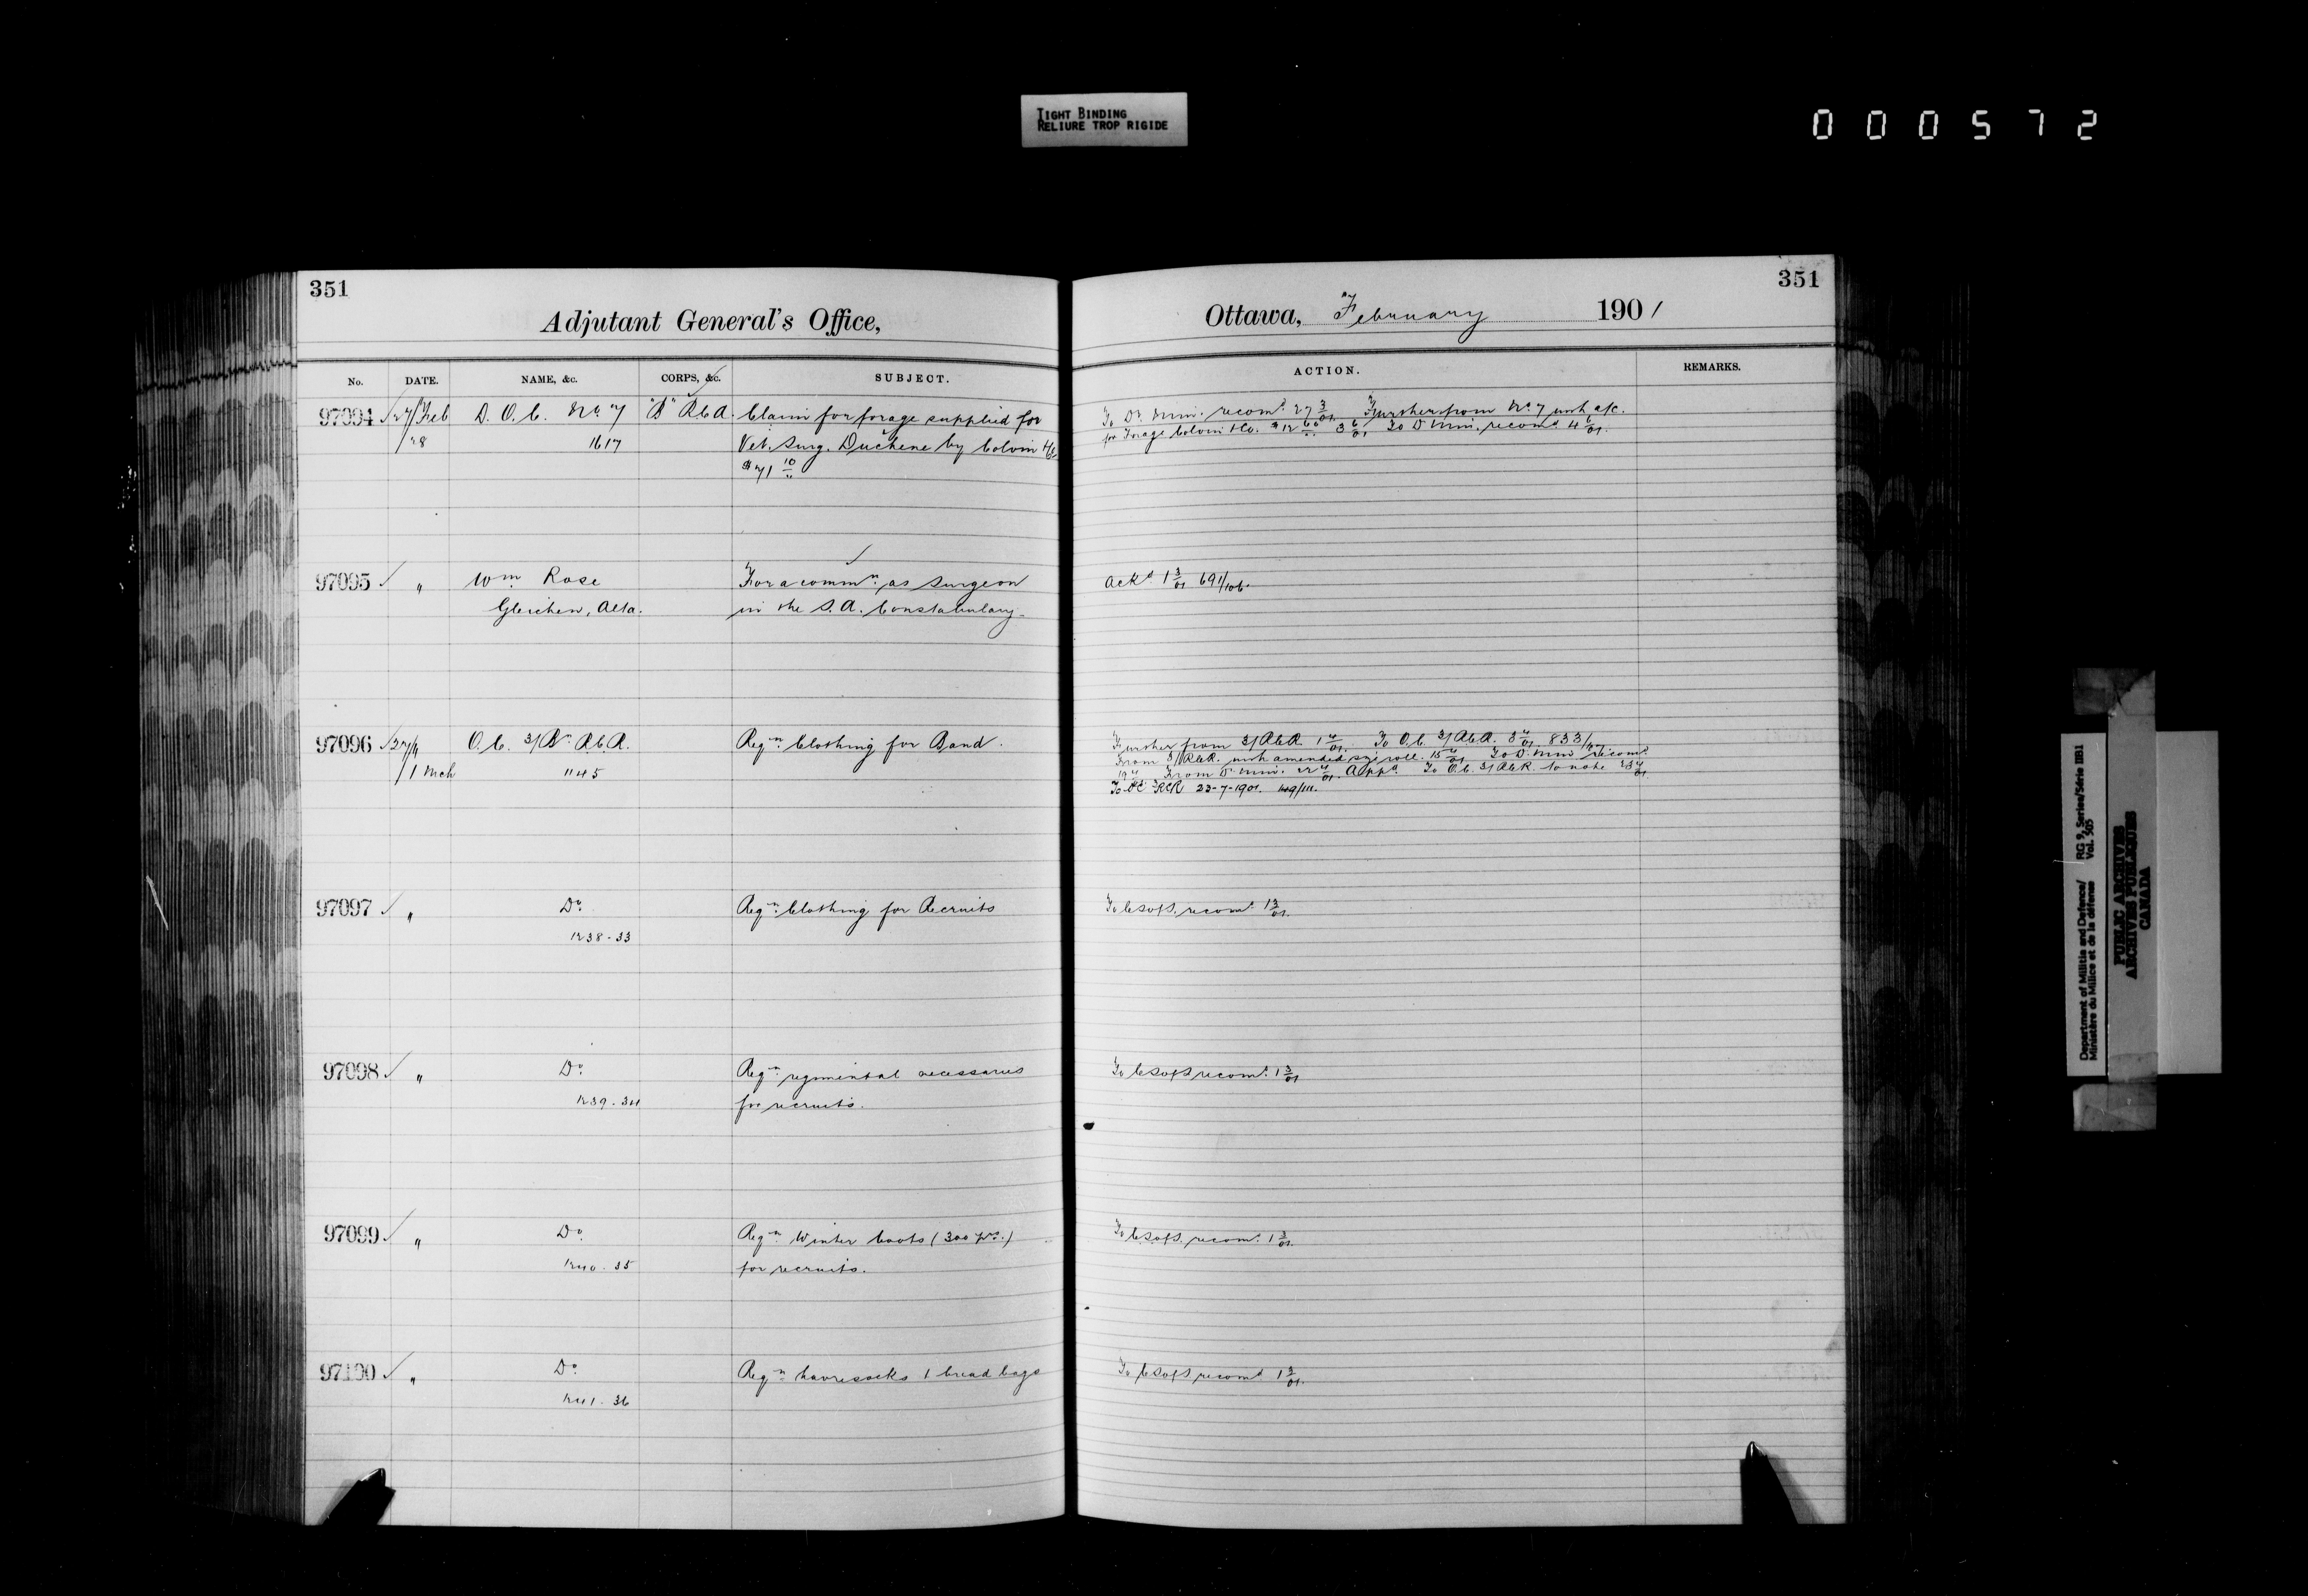 TIGHT BINDING
RELIURE TROP RIGIDE
000572
351
Adjutant General's Office,
No. DATE. NAME, &c. CORPS, &c. SUBJECT.
97094 27/Feb D. O. C. No 7 "B" R.C.A. Claim for forage supplied for
/28 1617 Vet. Surg. Duchene by Colvin
$71 10
97095 " Wm Rose For a commn. as surgeon
Gleichen, Alta. in the S. A. Constabulary
97096 27/ O. C. 3/Bn. R.C.R. Reqn. Clothing for Band.
/1 Mch 1145
97097 " Do. Reqn. Clothing for Recruits
1238-33
97098 " Do. Reqn. regimental necessaries
1239-34 for recruits.
97099 " Do. Reqn. Winter boots (300 prs.)
1240-35 for recruits.
97100 " Do. Reqn. havresacks & bread bags
1241-36
351
Ottawa, February 1901
ACTION. REMARKS.
To D. Min. recomd. 27 3/01. Further from No. 7 with a/c.
for Forage Colvin & Co. $12 60 3 6/01 To D. Min. recomd 4 6/01.
Ackd. 1 3/01 691/106.
Further from 3/R.C.R. 1 To O.C. 3/R.C.R. 3 833/
From 3/R.C.R. with amended size roll. 15 To D. Min. recomd.
19 From D. Min. 22 Appd. To O.C. 3/R.C.R. to note 23
To OC 3RCR 23-7-1901.
To C.S. of S. recomd. 1 3/01.
To C.S. of S. recomd. 1 3/01
To C.S. of S. recomd. 1 3/01.
To C.S. of S. recomd. 1 3/01.
Department of Militia and Defence/ RG 9, Series/Série IIB1
Ministère du Milice et de la défense Vol. 505
PUBLIC ARCHIVES
ARCHIVES PUBLIQUES
CANADA